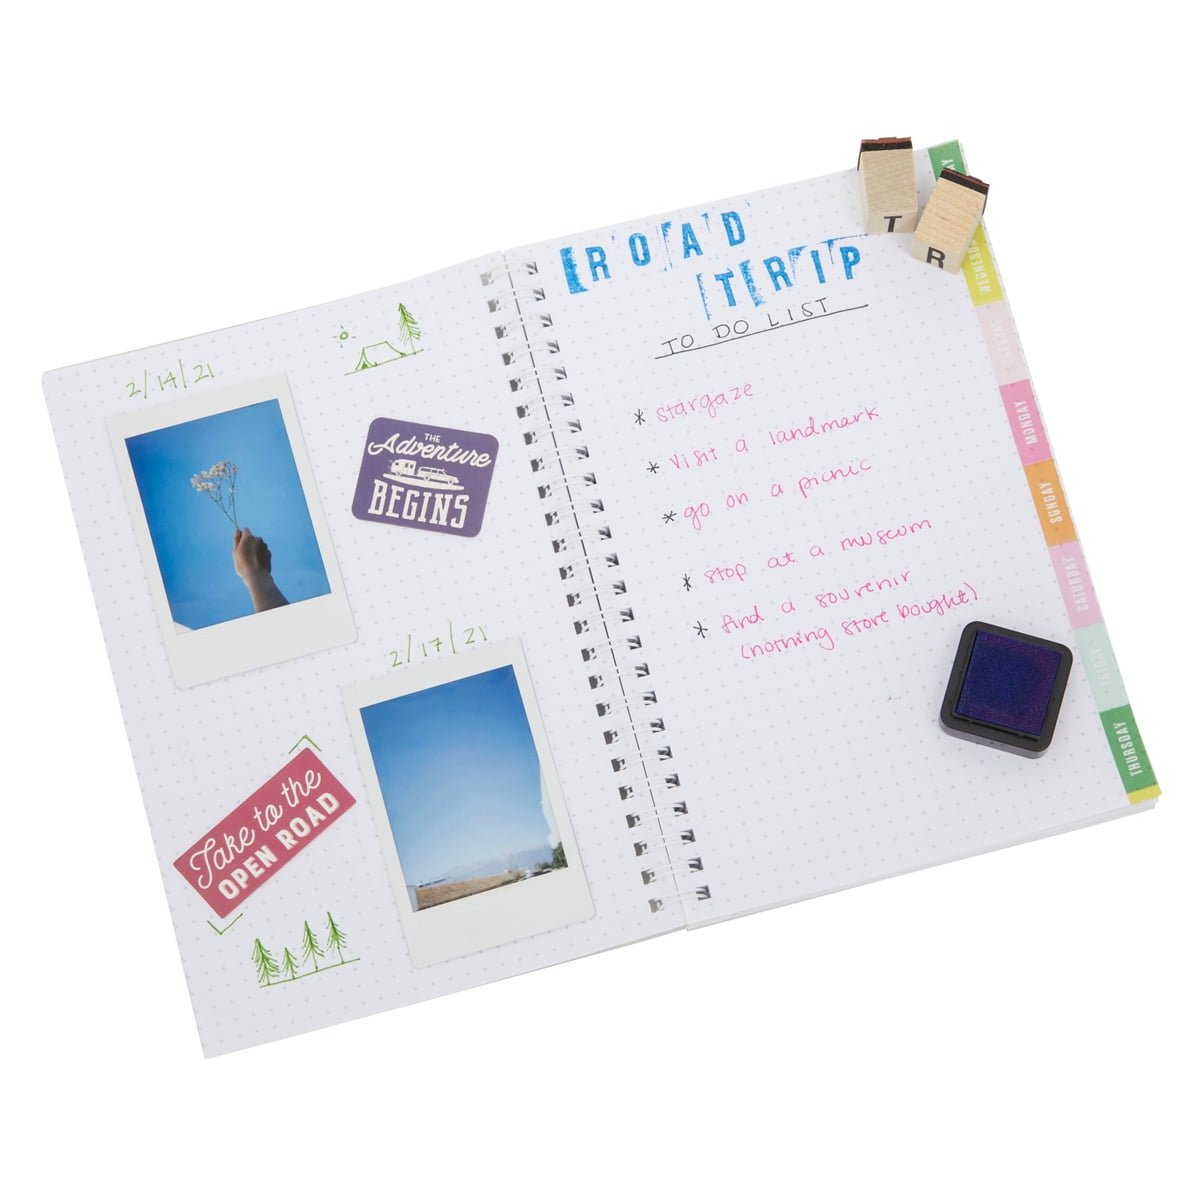 2/14/21
THE
Adventure
BEGINS
2/17/21
Take to the
OPEN ROAD
ROAD
TRIP
TO DO LIST
* stargaze
* visit a landmark
* go on a picnic
* stop at a museum
* find a souvenir
(nothing store bought)
T
R
MONDAY
SUNDAY
SATURDAY
FRIDAY
THURSDAY